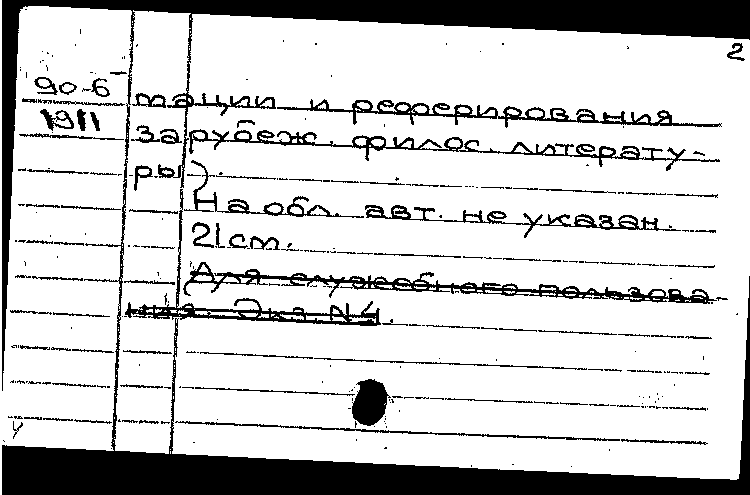 2
90-6
1911
тации и реферирования
зарубеж. филос. литерату-
ры).
На обл. авт. не указан.
21 см.
Для служебного пользова-
ния. Экз. N4.